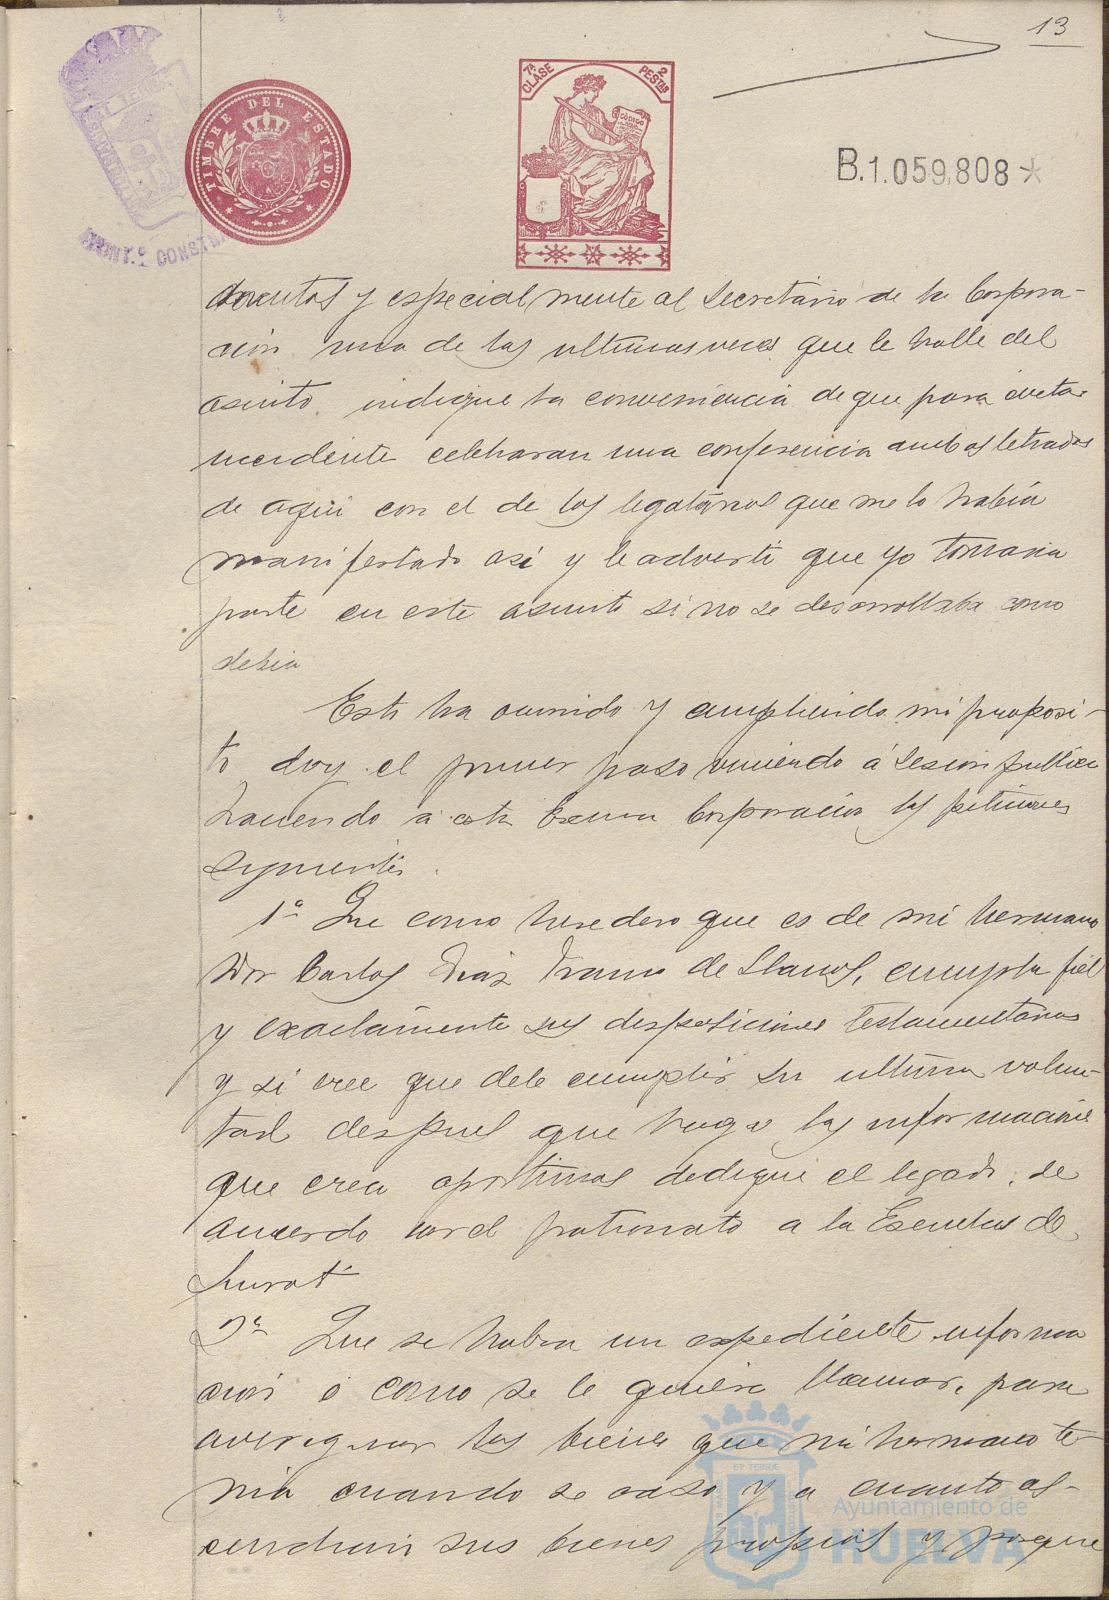 13
TIMBRE DEL ESTADO
7ª CLASE
2 PESTAS
CÓDIGO
B.1.059,808*
AYUNT.º CONSTI
y especialmente al Secretario de la Corpora-
ción una de las ultimas veces que le hallé del
asunto indiqué la conveniencia de que para evitar
incidente celebraran una conferencia ambos letrados
de aquí con el de los legatarios que me lo habia
manifestado así y le advertí que yo tomaria
parte en este asunto si no se desarrollaba como
debia
Esto ha ocurrido y cumpliendo mi proposi-
to doy el primer paso viniendo á Sesion publica
haciendo á esta Excma Corporación las peticiones
siguientes.
1ª Que como heredero que es de mi hermano
Don Carlos Diaz Franco de Llanos, cumpla fiel
y exactamente sus disposiciones testamentarias
y si cree que debe cumplir su ultima volun-
tad despues que haga las informaciones
que crea oportunas dedique el legado, de
acuerdo con el patronato a la Escuelas de
2ª Que se habra un expediente informa
ción o como se le quiera llamar, para
averiguar los bienes que mi hermano te-
nia cuando se caso y a cuanto as-
cendian sus bienes propios y porque
ET TERRÆ
Ayuntamiento de
HUELVA